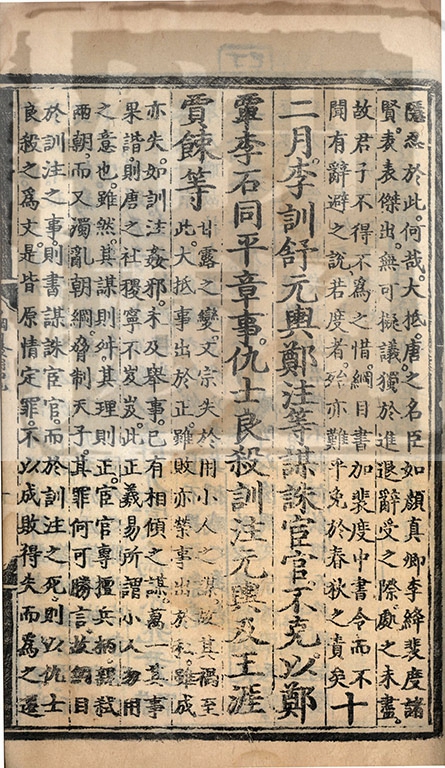 隱忍於此何哉大抵唐之名臣如顔真卿李絳裴度諸
賢表表傑出無可擬議獨於進退辭受之際處之未盡
故君子不得不為之惜綱目書加裴度中書令而不
聞有辭避之說若度者殆亦難乎免於春秋之責矣
十
二月李訓舒元輿鄭注等謀誅宦官不克以鄭
覃李石同平章事仇士良殺訓注元輿及王涯
賈餗等
甘露之變文宗失於用小人之謀故其禍至
此大抵事出於正雖敗亦榮事出於私雖成
亦失如訓注姦邪未及舉事已有相傾之謀萬一其事
果諧則唐之社稷寧不岌岌此正羲易所謂小人勿用
之意也雖然其謀則舛其理則正宦官專擅兵柄親弑
兩朝而又濁亂朝綱脅制天子其罪何可勝言故綱目
於訓注之事則書謀誅宦官而於訓注之死則以仇士
良殺之為文是皆原情定罪不以成敗得失而為之遷